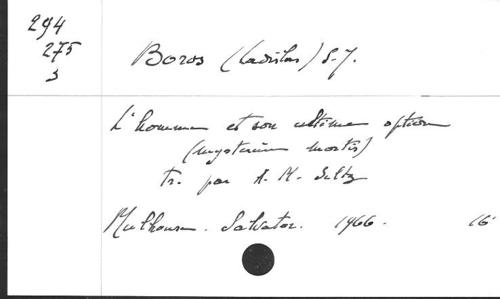 294
275
3
Boros (Ladislas) S.J.
L'homme et son ultime option
(mysterium mortis)
tr. par A. M. Seltz
Mulhouse. Salvator. 1966. 16°